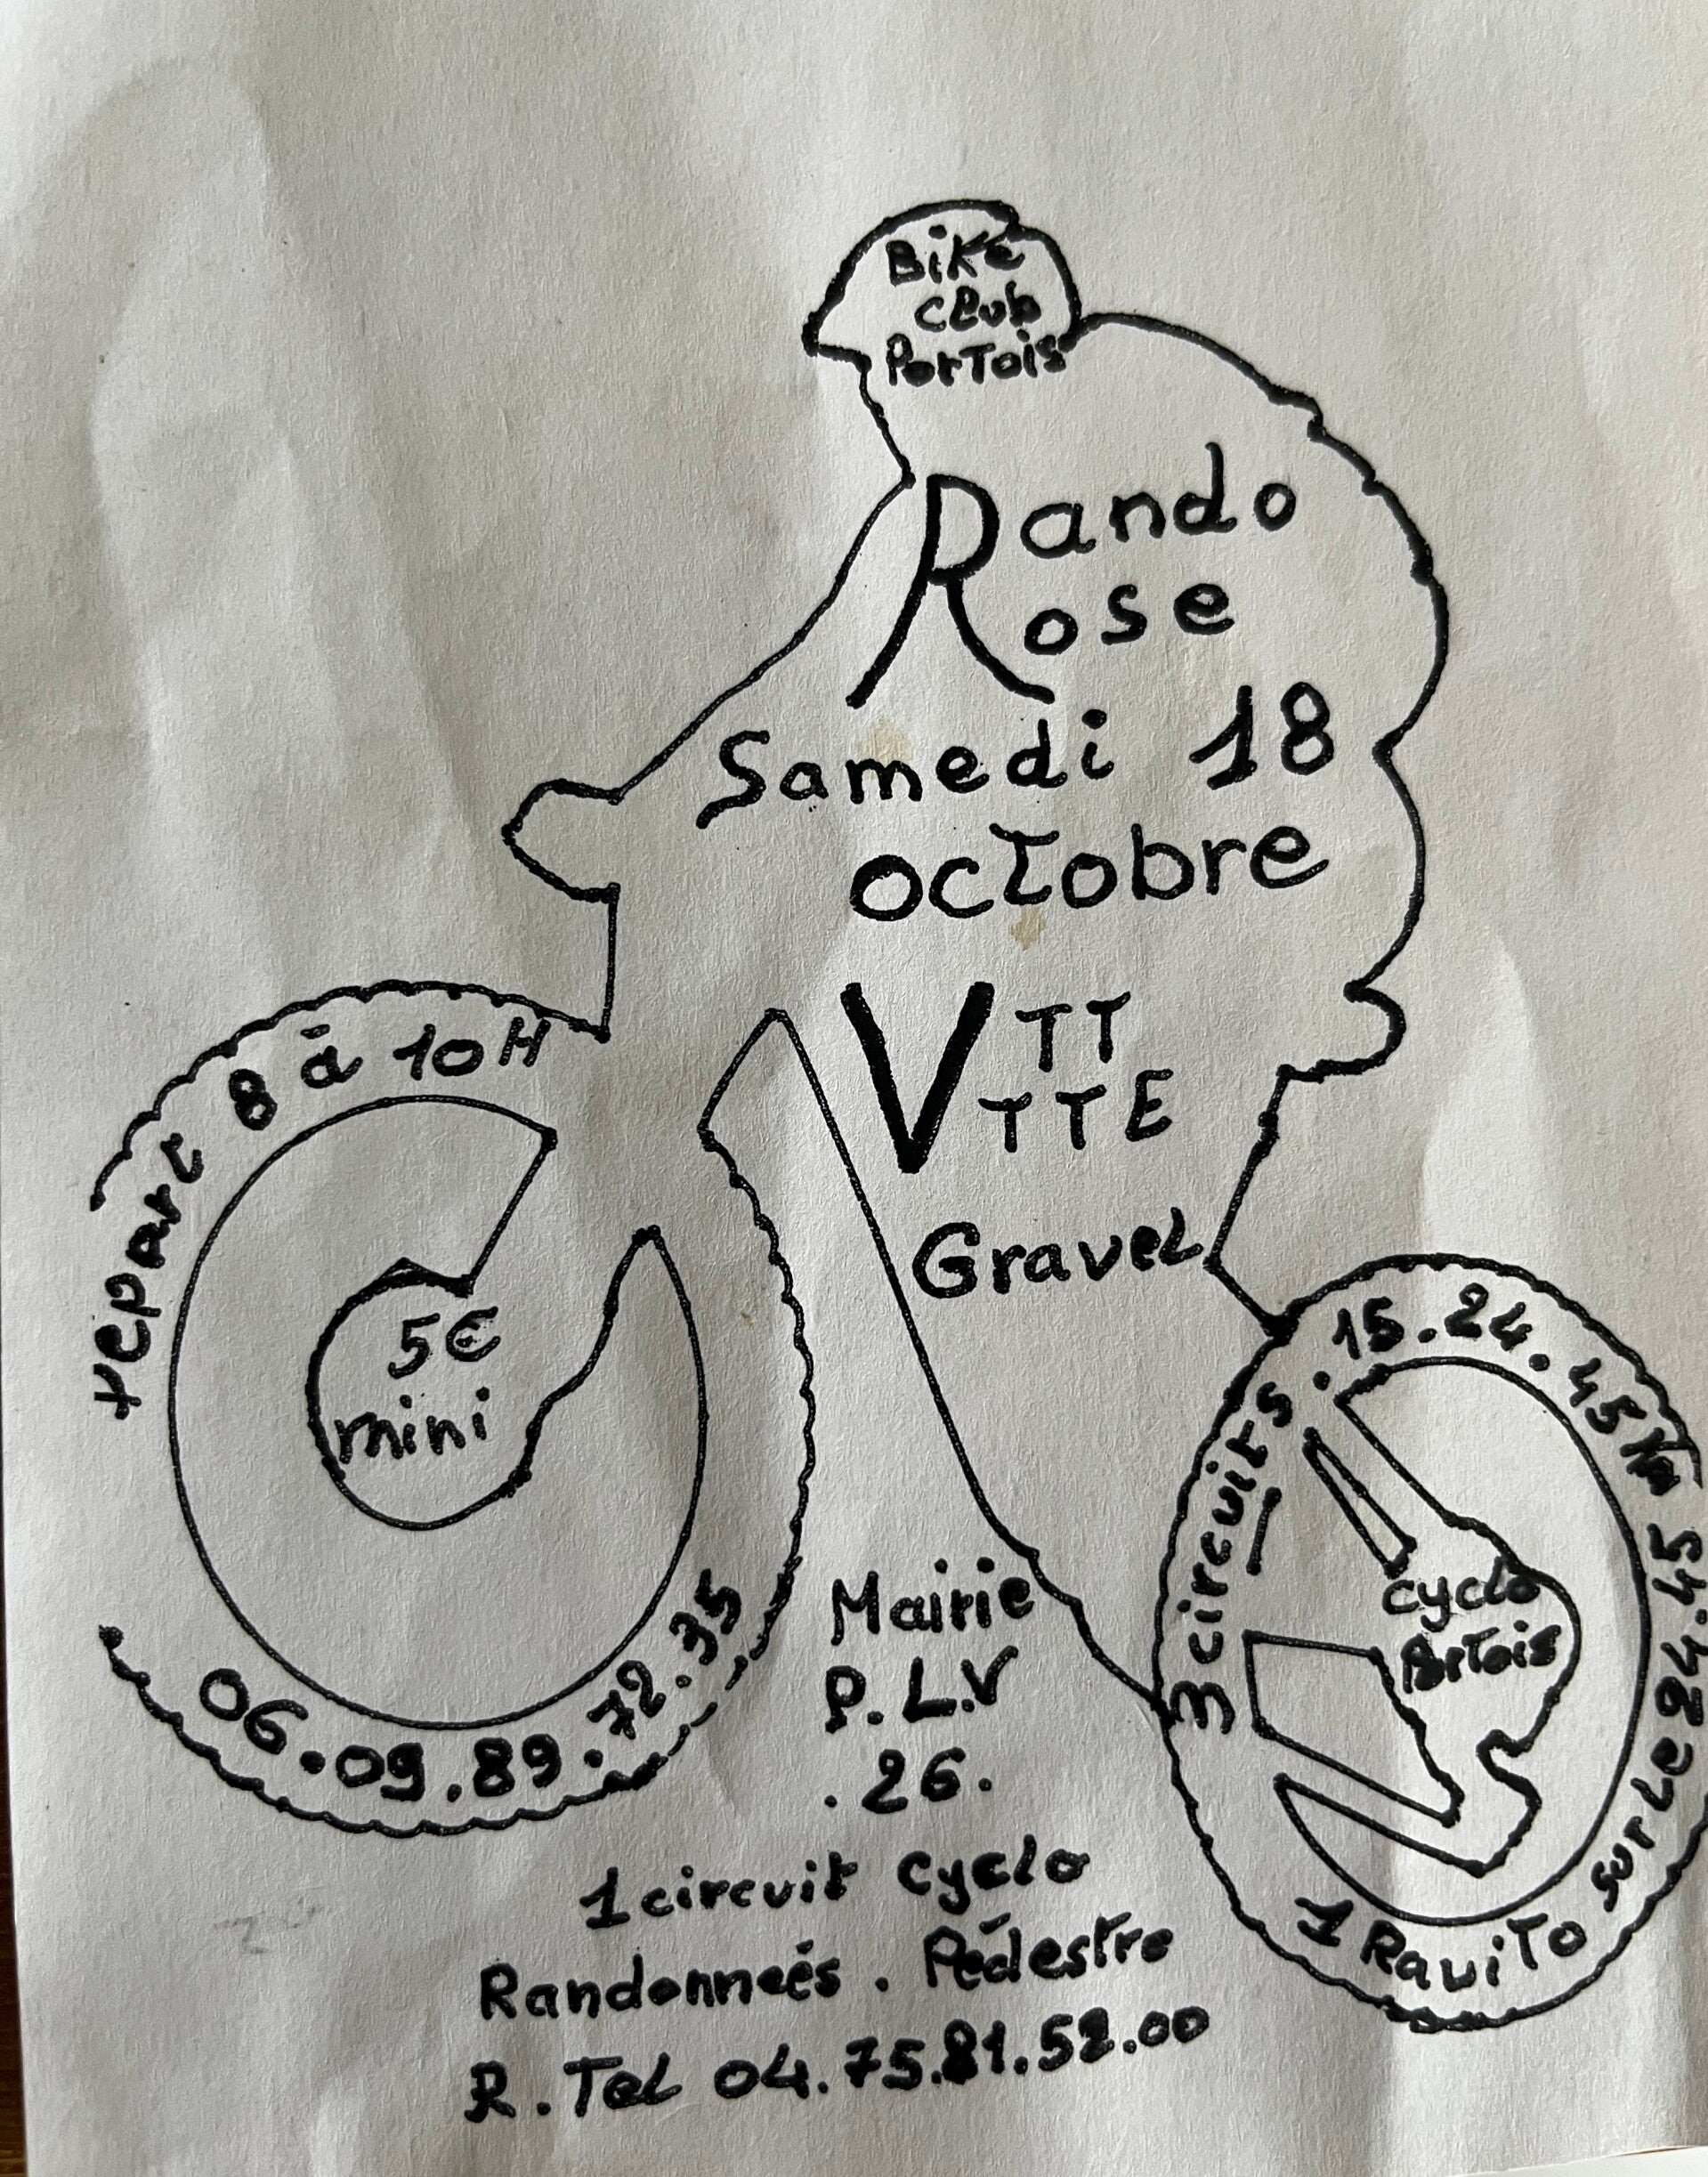 Bike
Club
Portois
Rando
Rose
Samedi 18
octobre
VTT
VTTE
Gravel
Depart 8 à 10H
5€
mini
06.09.89.72.35
3 circuits.15.24.45 Km
1 Ravito sur le 24.45
cyclo
Portois
Mairie
P.L.V
.26.
1 circuit cyclo
Randonneés. Pédestre
R. Tel 04.75.81.52.00